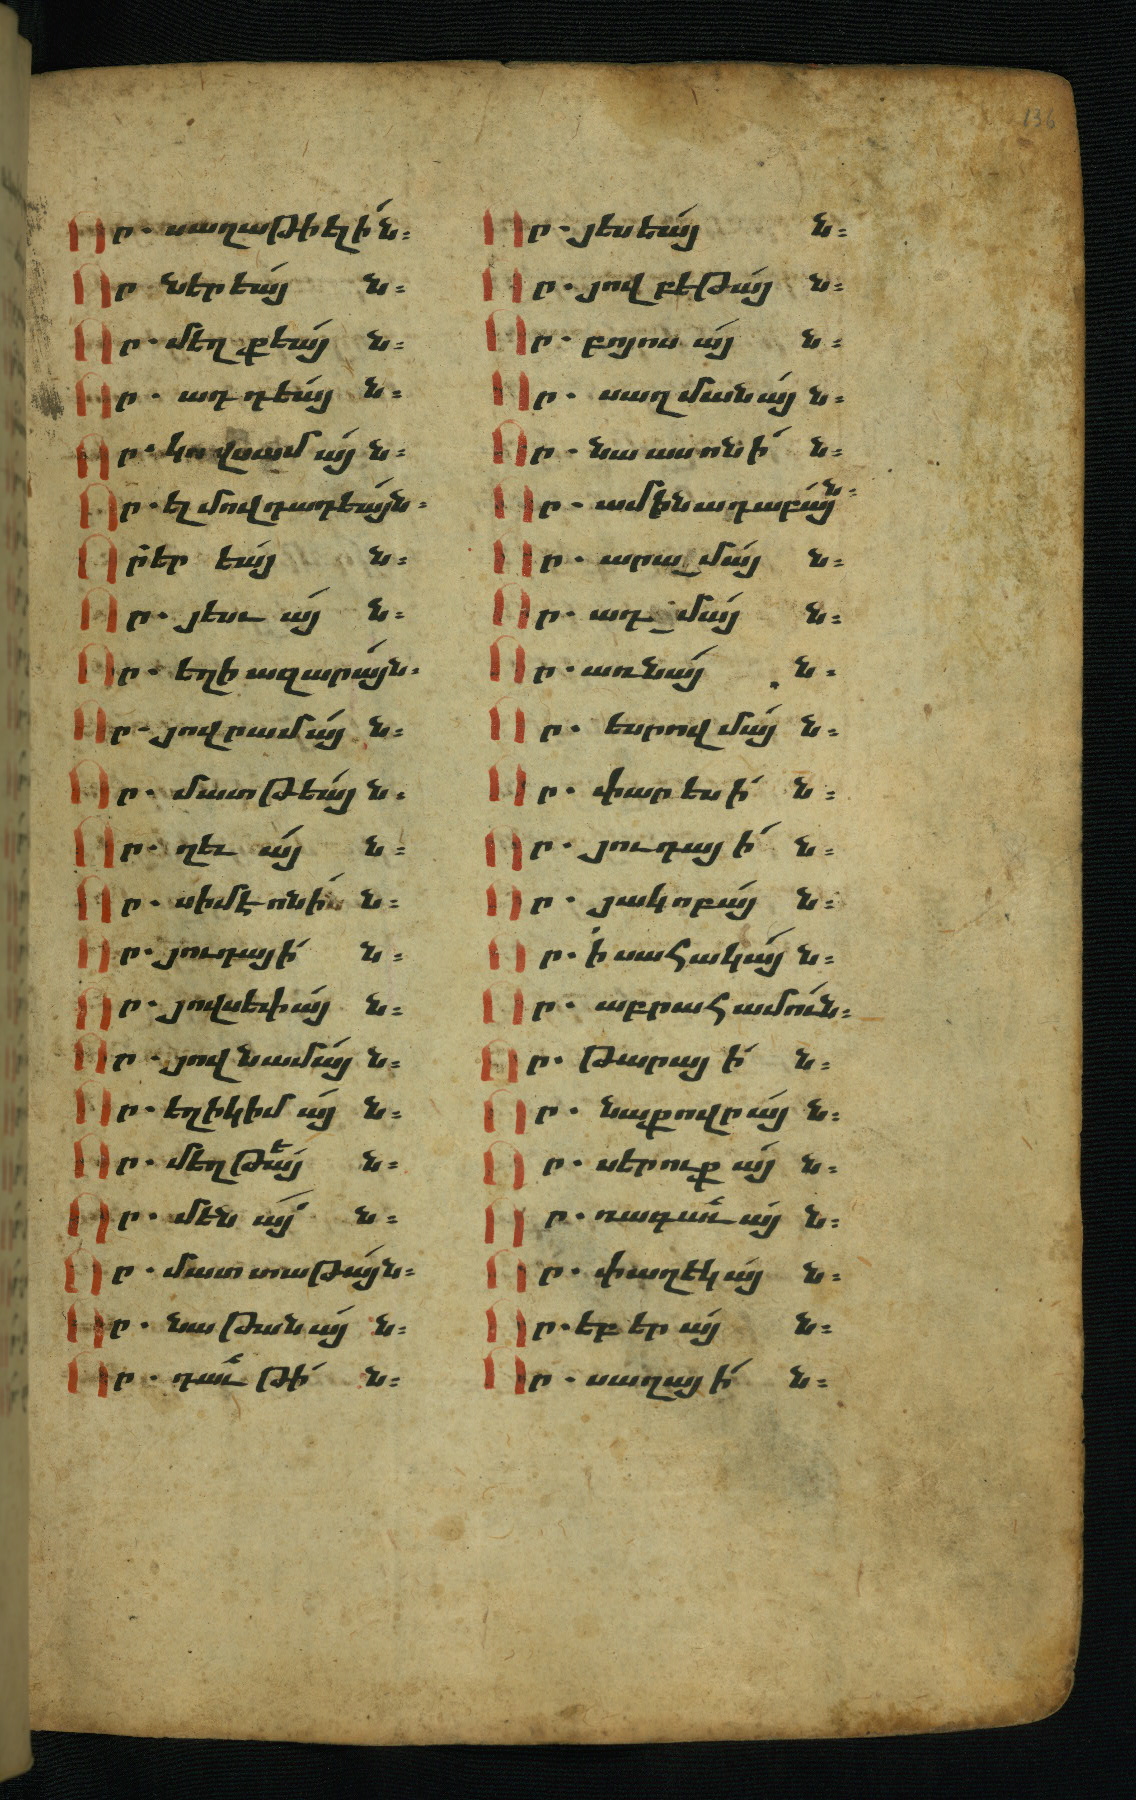 136
Որ. սաղաթիելի՛ն։
Որ ներեա՛յ ն։
Որ. մեղքեա՛յ ն։
Որ. ադդեա՛յ ն։
Որ. կովսամա՛յ ն։
Որ. էլմովդադեա՛յն։
Որ էեր եա՛յ ն։
Որ. յեսու ա՛յ ն։
Որ. եղիազարա՛յն։
Որ. յովրամա՛յ ն։
Որ. մատթեա՛յ ն։
Որ. ղեւ ա՛յ ն։
Որ. սիմէոնի՛ ն։
Որ. յուդայի՛ ն։
Որ. յովսեփա՛յ ն։
Որ. յովնամա՛յ ն։
Որ. եղիկիմա՛յ ն։
Որ. մեղթեա՛յ ն։
Որ. մեն ա՛յ ն։
Որ. մատտաթա՛յն։
Որ. նաթանա՛յ ն։
Որ. դաւթի՛ ն։
Որ. յեսեա՛յ ն։
Որ. յովբեթա՛յ ն։
Որ. բոյոս ա՛յ ն։
Որ. սաղմանա՛յ ն։
Որ. նաասոնի՛ ն։
Որ. ամինադաբա՛յ ն։
Որ. արամա՛յ ն։
Որ. ադմա՛յ ն։
Որ. առնա՛յ ն։
Որ. եսրովմա՛յ ն։
Որ. փարեսի՛ ն։
Որ. յուդայի՛ ն։
Որ. յակոբա՛յ ն։
Որ. իսահակա՛յ ն։
Որ. աբրահամու՛ն։
Որ. թարայի՛ ն։
Որ. նաքովրա՛յ ն։
Որ. սերուքա՛յ ն։
Որ. ռագաւա՛յ ն։
Որ. փաղեկա՛յ ն։
Որ. եբերա՛յ ն։
Որ. սաղայի՛ ն։